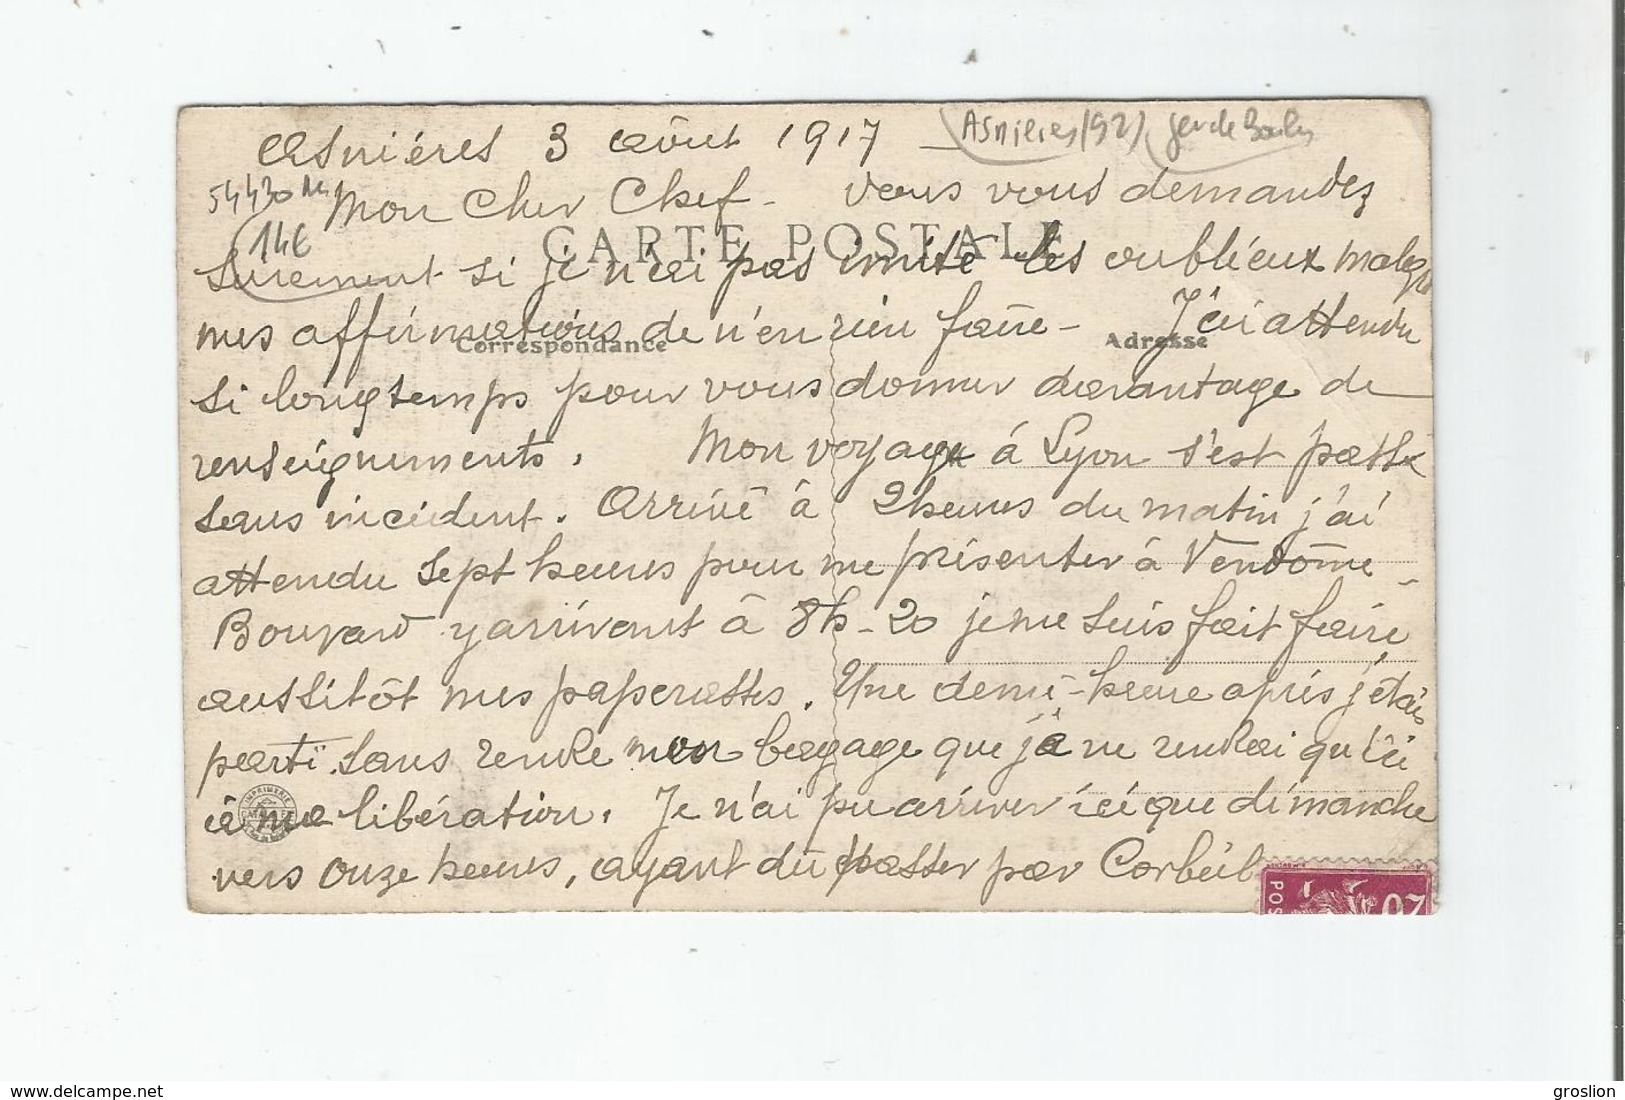 Asnières 3 août 1917 Asnières (92) jeu de Boules
54430
Mon Cher Chef - Vous vous demandez
14€
CARTE POSTALE
surement si je n'ai pas imité les oublieux malgré
mes affirmations de n'en rien faire - J'ai attendu
Correspondance Adresse
si longtemps pour vous donner davantage de
renseignements. Mon voyage à Lyon s'est passé
sans incident. Arrivé à 2 heures du matin j'ai
attendu sept heures pour me présenter à Vendôme -
Bouvard y arrivant à 8h-20 je me suis fait faire
aussitôt mes paperasses. Une demi-heure après j'étais
parti sans rendre mon bagage que je ne rendrai qu'ici
à ma libération. Je n'ai pu arriver ici que dimanche
vers onze heures, ayant dû passer par Corbeil
IMPRIMERIE
POS
20
www.delcampe.net
groslion